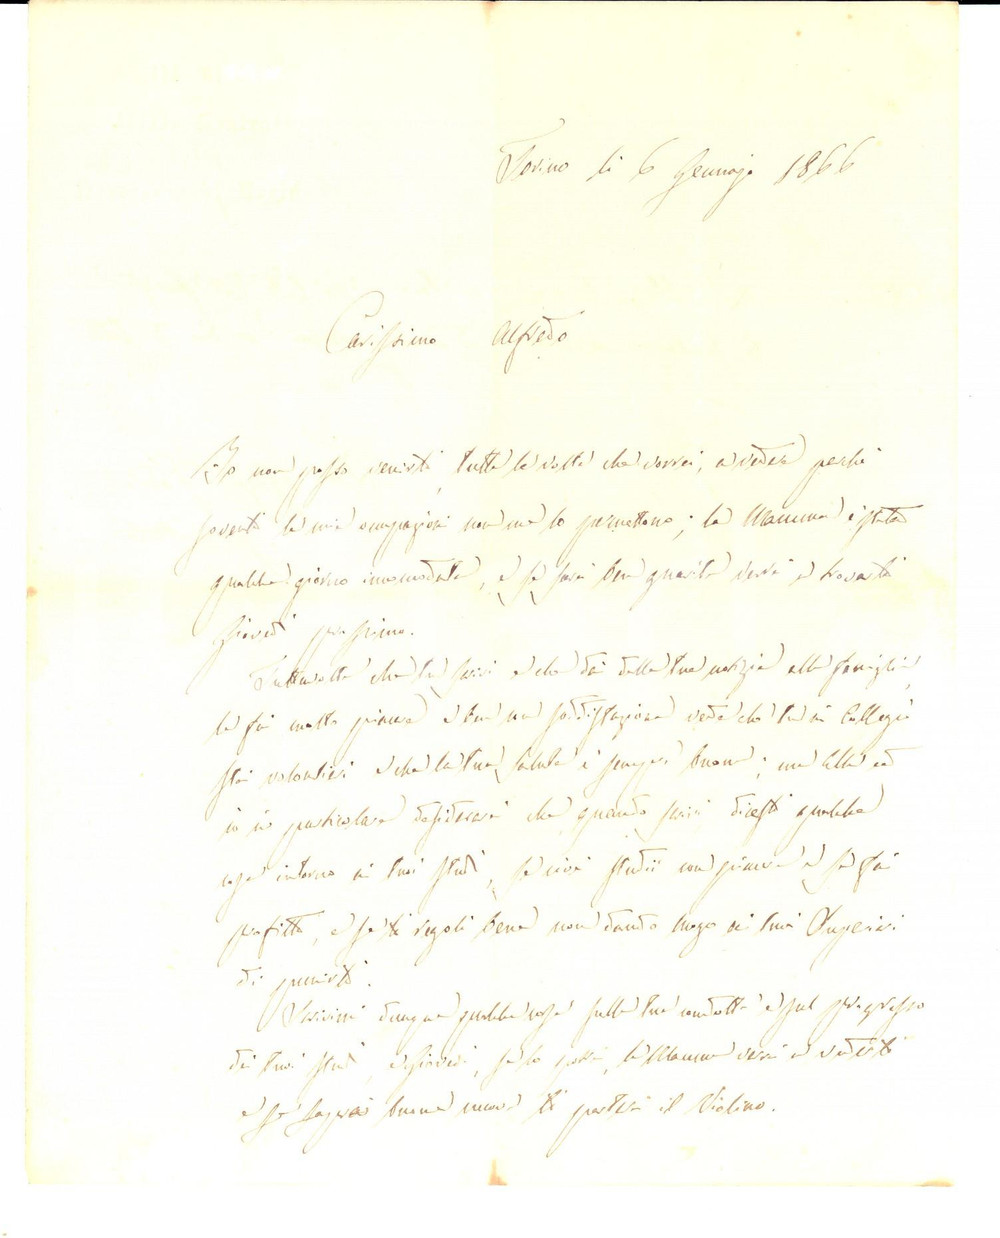 Torino li 6 Gennajo 1866
Carissimo Alfredo
Io non posso venirti, tutte le volte che vorrei, a vedere perchè
soventi le mie occupazioni non me lo permettono; la Mamma è stata
qualche giorno incomodata, e se sarà ben guarita verrà a trovarti
Giovedì prossimo.
Tuttavolta che tu scrivi e che dai delle tue notizie alla famiglia,
le fai molto piacere e una soddisfazione vedere che tu in Collegio
stai volontieri e che la tua salute è sempre buona; ma Essa ed
io in particolare desidererei che quando scrivi dicesti qualche
cosa intorno ai tuoi studi, se cioè studii con piacere e se fai
profitto, e se ti regoli bene non dando luogo ai tuoi Superiori
di punirti.
Scrivimi dunque qualche cosa sulla tua condotta e sul progresso
dei tuoi studi, e Giovedì, se lo potrà, la Mamma verrà a vederti
e se saprai buone nuove ti porterà il Violino.